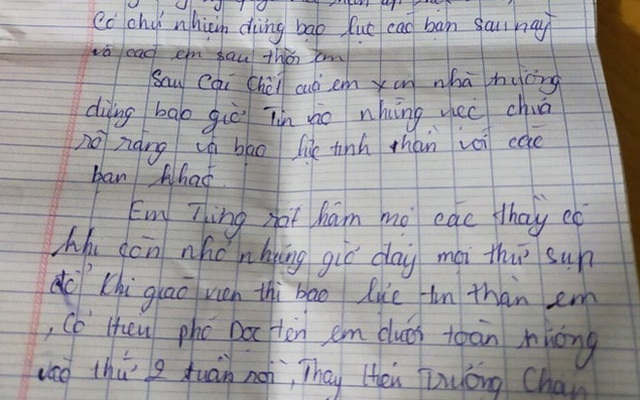 cô chủ nhiệm đừng bạo lực các bạn sau này
và các em sau thôi em
Sau Cái Chết của em xin nhà trường
đừng bao giờ Tin vào những việc chưa
rõ ràng và bạo lực tinh thần với các
bạn khác.
Em Từng rất hâm mộ các thầy cô
khi còn nhỏ nhưng giờ đây mọi thứ sụp
đổ khi giáo viên thì bạo lực tin thần em
, Cô Hiệu phó Đọc tên em dưới toàn trường
vào thứ 2 tuần rồi, Thầy Hiệu Trưởng Chan